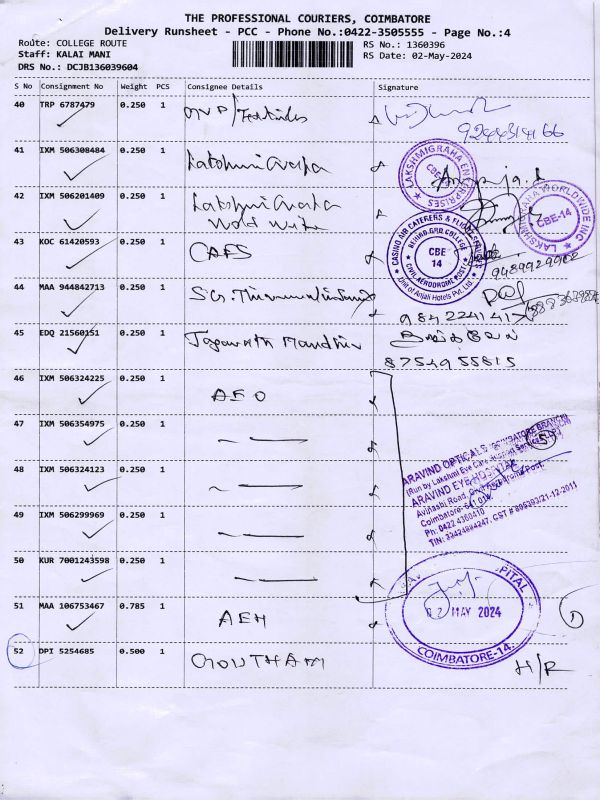 THE PROFESSIONAL COURIERS, COIMBATORE
Delivery Runsheet - PCC - Phone No.:0422-3505555 - Page No.:4
Route: COLLEGE ROUTE
Staff: KALAI MANI
DRS No.: DCJB136039604
RS No.: 1360396
RS Date: 02-May-2024
S No Consignment No Weight PCS Consignee Details Signature
40 TRP 6787479 0.250 1
9244314166
41 IXM 506308484 0.250 1 Lakshmi Graha
LAKSHMIGRAHA ENTERPRISES
CBE
42 IXM 506201409 0.250 1 Lakshmi Graha
World Wide
LAKSHMIGRAHA WORLDWIDE INC
CBE-14
43 KOC 61420593 0.250 1 CAFS
CASINO AIR CATERERS & FLIGHT SERVICES
BEHIND GRD COLLEGE
CBE
14
CIVIL AERODROME POST
Unit of Anjali Hotels Pvt. Ltd.
9489929902
44 MAA 944842713 0.250 1
9842241417
45 EDQ 21560151 0.250 1
8754955815
46 IXM 506324225 0.250 1 AEO
47 IXM 506354975 0.250 1
48 IXM 506324123 0.250 1
ARAVIND OPTICALS COIMBATORE BRANCH
(Run by Lakshmi Eye Care Support Services
ARAVIND EYE HOSPITAL
Avinashi Road, Civil Aerodrome Post,
Coimbatore- 641 014
Ph: 0422 4360410
5
49 IXM 506299969 0.250 1
50 KUR 7001243598 0.250 1
51 MAA 106753467 0.785 1 AEH
HOSPITAL
02 MAY 2024
COIMBATORE-14.
1
52 DPI 5254685 0.500 1 GOUTHAM
H/R